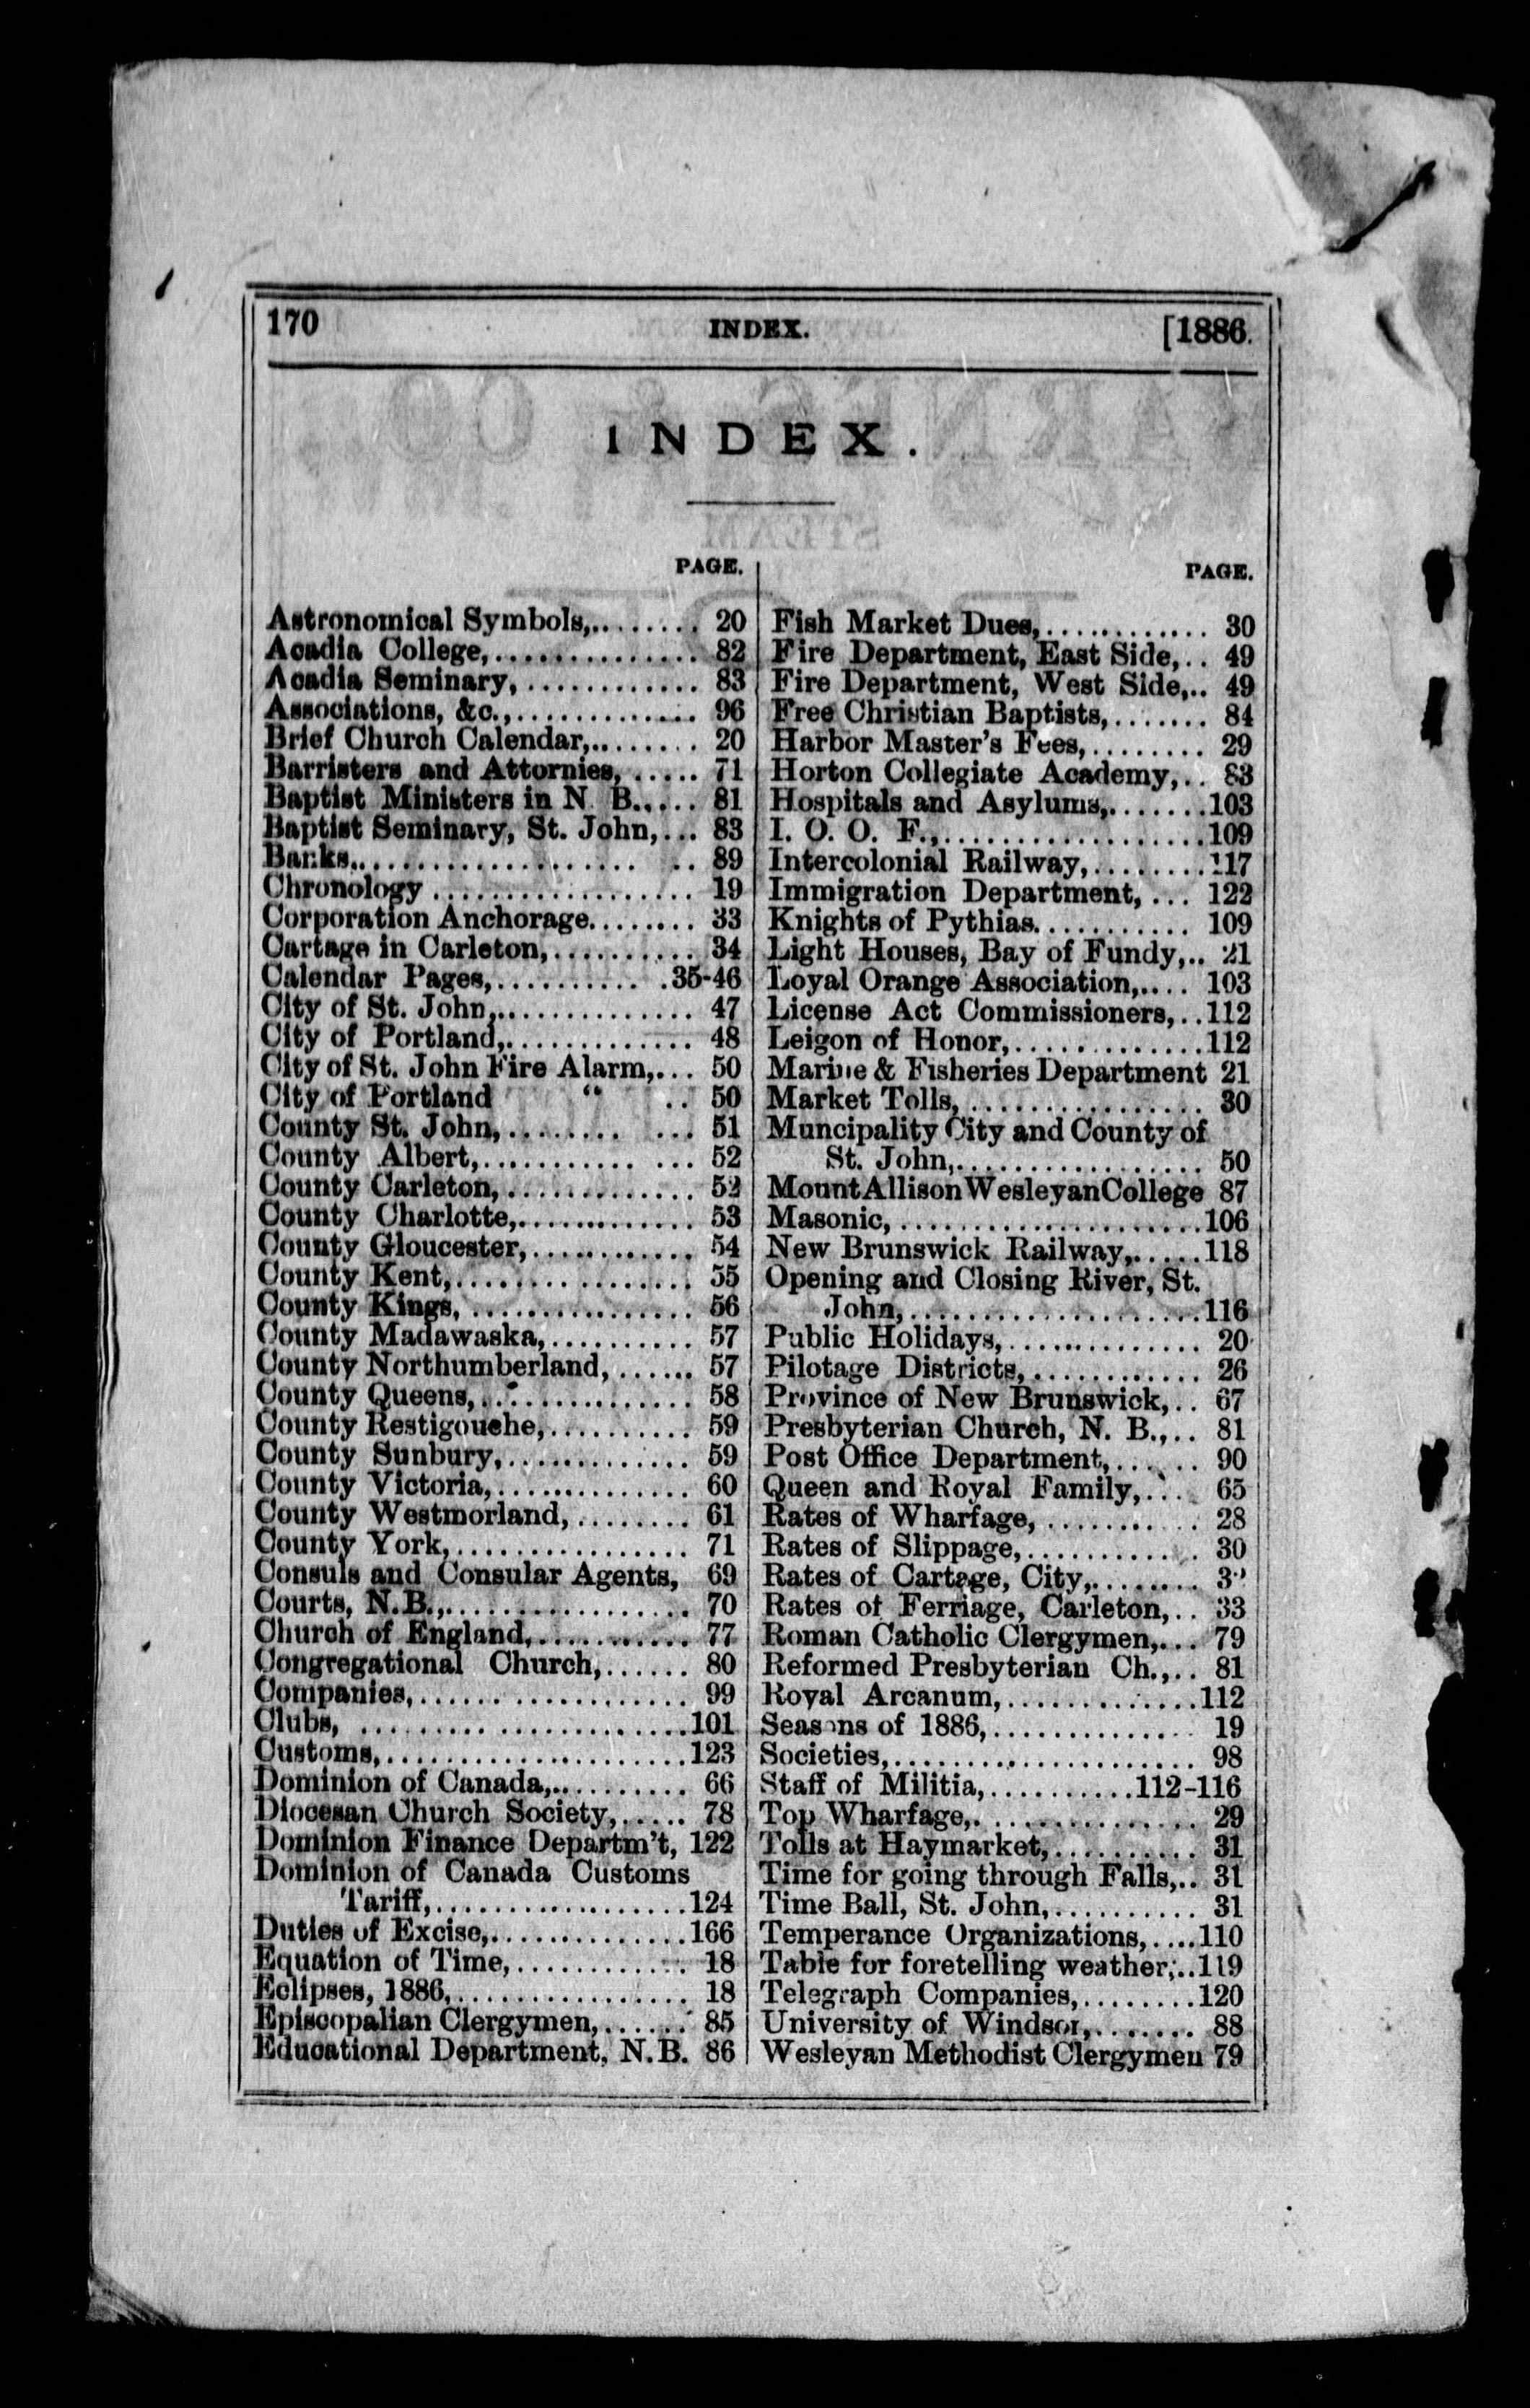 170 INDEX. [1886.
INDEX.
PAGE.
Astronomical Symbols,........ 20
Acadia College,............... 82
Acadia Seminary,............ 83
Associations, &c.,.............. 96
Brief Church Calendar,........ 20
Barristers and Attornies, ..... 71
Baptist Ministers in N. B..... 81
Baptist Seminary, St. John,... 83
Banks,..................... 89
Chronology .................. 19
Corporation Anchorage........ 33
Cartage in Carleton,.......... 34
Calendar Pages,............35-46
City of St. John,.............. 47
City of Portland,............. 48
City of St. John Fire Alarm,... 50
City of Portland " .. 50
County St. John,........... 51
County Albert,.............. 52
County Carleton,............. 52
County Charlotte,............ 53
County Gloucester,........... 54
County Kent,................ 55
County Kings,................ 56
County Madawaska,.......... 57
County Northumberland,...... 57
County Queens,............... 58
County Restigouche,.......... 59
County Sunbury,............. 59
County Victoria,.............. 60
County Westmorland,........ 61
County York,................ 71
Consuls and Consular Agents, 69
Courts, N.B.,................. 70
Church of England,........... 77
Congregational Church,...... 80
Companies,................... 99
Clubs, ......................101
Customs,....................123
Dominion of Canada,......... 66
Diocesan Church Society,..... 78
Dominion Finance Departm't, 122
Dominion of Canada Customs
Tariff,..................124
Duties of Excise,..............166
Equation of Time,............ 18
Eclipses, 1886,................ 18
Episcopalian Clergymen,...... 85
Educational Department, N.B. 86
PAGE.
Fish Market Dues,............ 30
Fire Department, East Side,.. 49
Fire Department, West Side,.. 49
Free Christian Baptists,....... 84
Harbor Master's Fees,........ 29
Horton Collegiate Academy,.. 83
Hospitals and Asylums,.......103
I. O. O. F.,..................109
Intercolonial Railway,........117
Immigration Department, ... 122
Knights of Pythias........... 109
Light Houses, Bay of Fundy,.. 21
Loyal Orange Association,.... 103
License Act Commissioners,..112
Leigon of Honor,.............112
Marine & Fisheries Department 21
Market Tolls,................ 30
Muncipality City and County of
St. John,................. 50
Mount Allison Wesleyan College 87
Masonic,.....................106
New Brunswick Railway,.....118
Opening and Closing River, St.
John,....................116
Public Holidays,............. 20
Pilotage Districts,............ 26
Province of New Brunswick,.. 67
Presbyterian Church, N. B.,.. 81
Post Office Department,...... 90
Queen and Royal Family,.... 65
Rates of Wharfage,........... 28
Rates of Slippage,............ 30
Rates of Cartage, City,........
Rates of Ferriage, Carleton,.. 33
Roman Catholic Clergymen,... 79
Reformed Presbyterian Ch.,.. 81
Royal Arcanum,.............112
Seasons of 1886,.............. 19
Societies,..................... 98
Staff of Militia,..........112-116
Top Wharfage,............... 29
Tolls at Haymarket,.......... 31
Time for going through Falls,.. 31
Time Ball, St. John,.......... 31
Temperance Organizations,.....110
Table for foretelling weather,..119
Telegraph Companies,........120
University of Windsor,....... 88
Wesleyan Methodist Clergymen 79